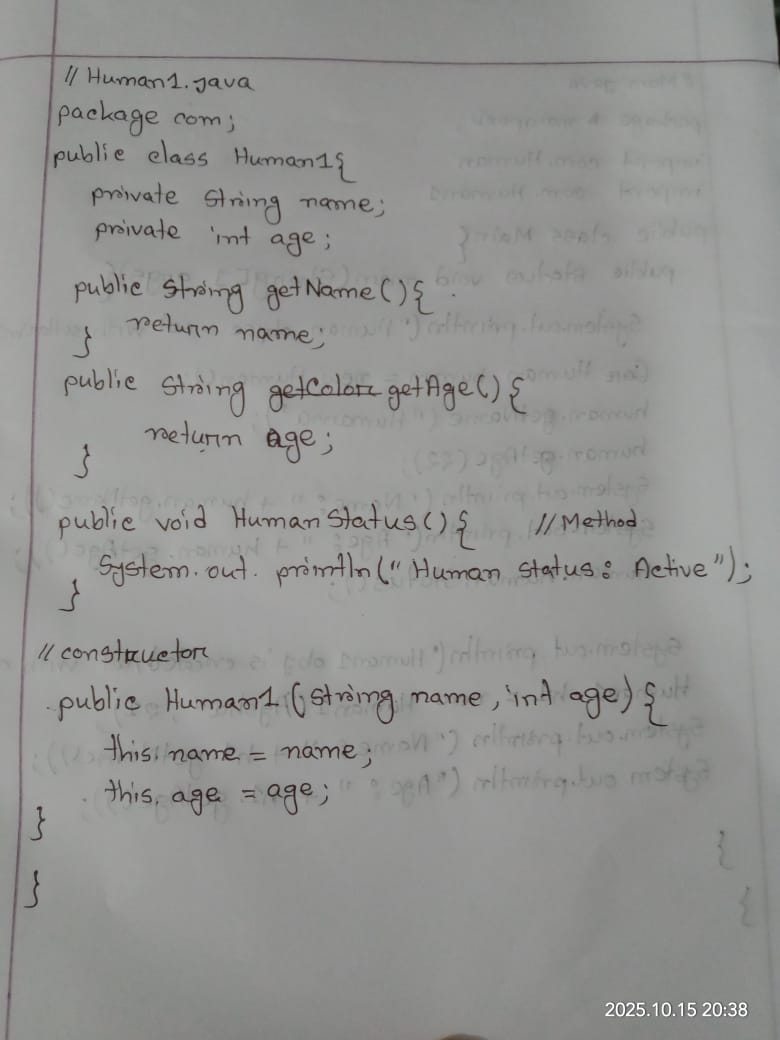 // Human1.java
package com;
public class Human1{
private String name;
private int age;
public String getName(){
return name;
}
public String getColor getAge(){
return age;
}
public void HumanStatus(){ // Method
System.out.println("Human status: Active");
}
// constructor
public Human1(String name, int age){
this.name = name;
this.age = age;
}
}
2025.10.15 20:38